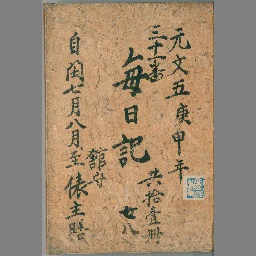 元文五庚申年
三十一番
毎日記
共拾壹冊
廿八
自閏七月八月至
舘守
俵主膳